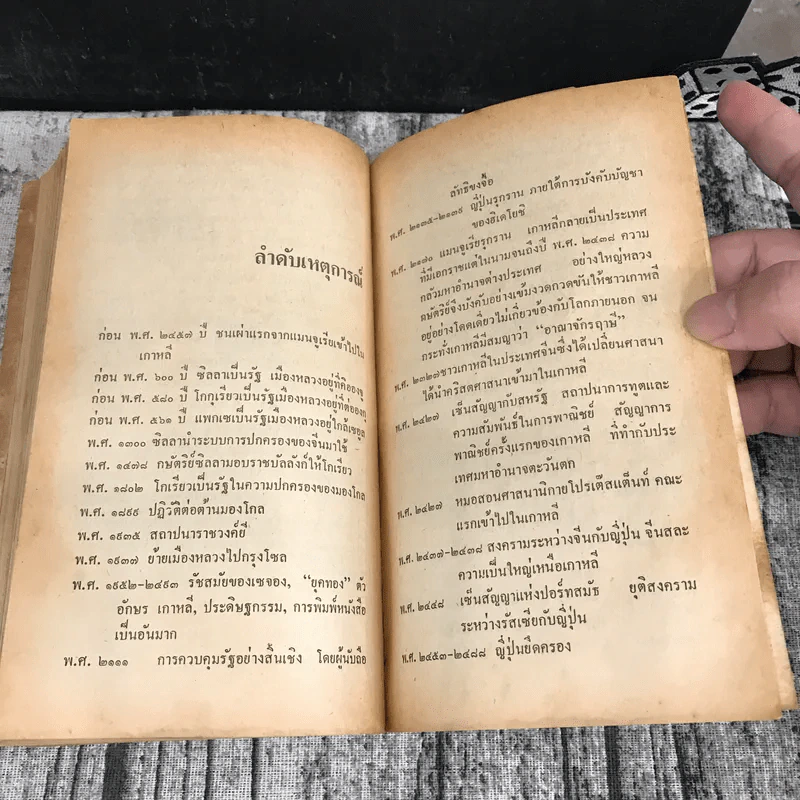 ลำดับเหตุการณ์
ก่อน พ.ศ. ๒๔๕๗ ปี ชนเผ่าแรกจากแมนจูเรียเข้าไปใน
เกาหลี
ก่อน พ.ศ. ๖๐๐ ปี ซิลลาเป็นรัฐ เมืองหลวงอยู่ที่คีองจู
ก่อน พ.ศ. ๕๘๐ ปี โกกูเรียวเป็นรัฐเมืองหลวงอยู่ที่
ก่อน พ.ศ. ๕๖๑ ปี แพกเซเป็นรัฐเมืองหลวงอยู่ใกล้เซอูล
พ.ศ. ๑๓๐๐ ซิลลานำระบบการปกครองของจีนมาใช้
พ.ศ. ๑๔๗๘ กษัตริย์ซิลลามอบราชบัลลังก์ให้โกเรียว
พ.ศ. ๑๘๐๒ โกเรียวเป็นรัฐในความปกครองของมองโกล
พ.ศ. ๑๘๙๙ ปฏิวัติต่อต้านมองโกล
พ.ศ. ๑๙๓๕ สถาปนาราชวงค์ยี
พ.ศ. ๑๙๓๗ ย้ายเมืองหลวงไปกรุงโซล
พ.ศ. ๑๙๕๒-๒๔๙๓ รัชสมัยของเซจอง, “ยุคทอง” ตัว
อักษร เกาหลี, ประดิษฐกรรม, การพิมพ์หนังสือ
เป็นอันมาก
พ.ศ. ๒๑๑๑ การควบคุมรัฐอย่างสิ้นเชิง โดยผู้นับถือ
ลัทธิขงจื้อ
พ.ศ. ๒๑๓๕-๒๑๓๙ ญี่ปุ่นรุกราน ภายใต้การบังคับบัญชา
ของฮิเดโยชิ
พ.ศ. ๒๑๗๐ แมนจูเรียรุกราน เกาหลีกลายเป็นประเทศ
ที่มีเอกราชแต่ในนามจนถึงปี พ.ศ. ๒๔๓๘ ความ
กลัวมหาอำนาจต่างประเทศ อย่างใหญ่หลวง
กษัตริย์จึงบังคับอย่างเข้มงวดกวดขันให้ชาวเกาหลี
อยู่อย่างโดดเดี่ยวไม่เกี่ยวข้องกับโลกภายนอก จน
กระทั่งเกาหลีมีสมญาว่า “อาณาจักรฤาษี”
พ.ศ. ๒๓๒๗ชาวเกาหลีในประเทศจีนซึ่งได้เปลี่ยนศาสนา
ได้นำคริสตศาสนาเข้ามาในเกาหลี
พ.ศ. ๒๔๒๗ เซ็นสัญญากับสหรัฐ สถาปนาการทูตและ
ความสัมพันธ์ในการพาณิชย์ สัญญาการ
พาณิชย์ครั้งแรกของเกาหลี ที่ทำกับประ
เทศมหาอำนาจตะวันตก
พ.ศ. ๒๔๒๗ หมอสอนศาสนานิกายโปรเต๊สแต็นท์ คณะ
แรกเข้าไปในเกาหลี
พ.ศ. ๒๔๓๗-๒๔๓๘ สงครามระหว่างจีนกับญี่ปุ่น จีนสละ
ความเป็นใหญ่เหนือเกาหลี
พ.ศ. ๒๔๔๘ เซ็นสัญญาแห่งปอร์ทสมัธ ยุติสงคราม
ระหว่างรัสเซียกับญี่ปุ่น
พ.ศ. ๒๔๕๓-๒๔๘๘ ญี่ปุ่นยึดครอง